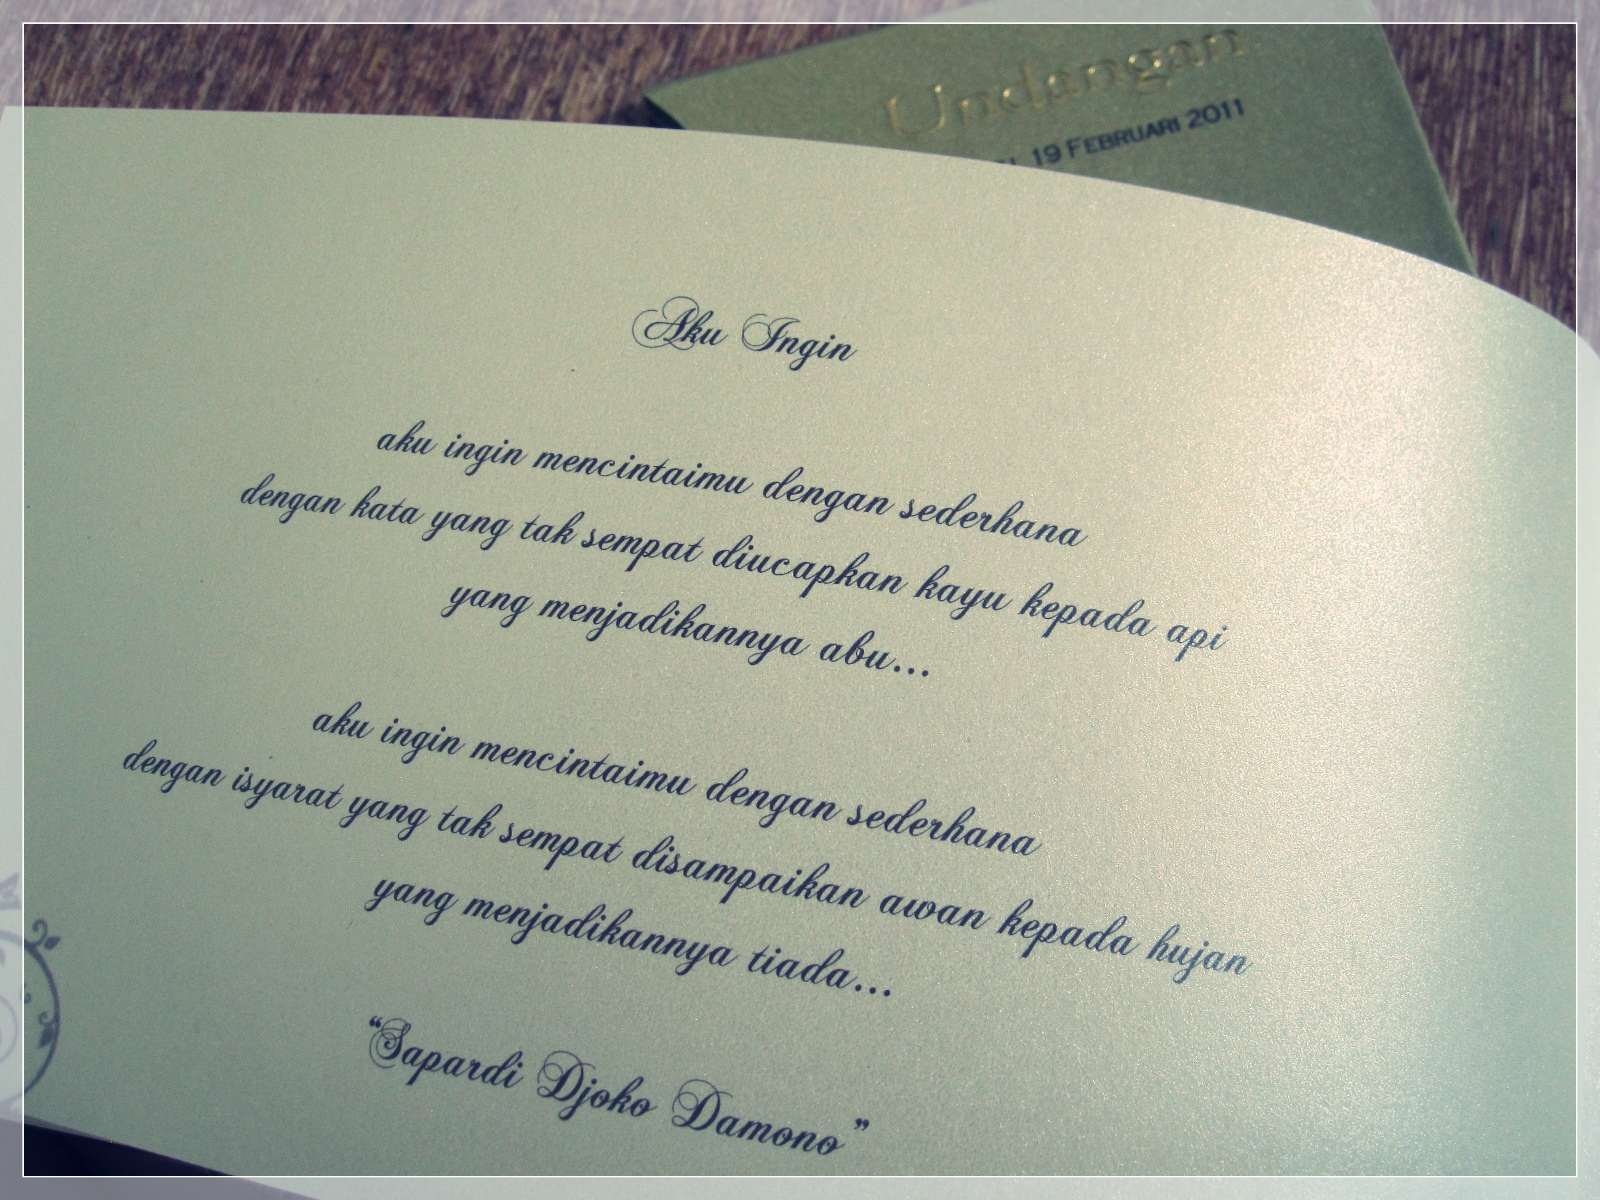 Undangan
19 FEBRUARI 2011
Aku Ingin
aku ingin mencintaimu dengan sederhana
dengan kata yang tak sempat diucapkan kayu kepada api
yang menjadikannya abu...
aku ingin mencintaimu dengan sederhana
dengan isyarat yang tak sempat disampaikan awan kepada hujan
yang menjadikannya tiada...
“Sapardi Djoko Damono”